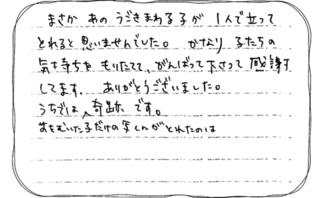 まさか あの うごきまわる子が 1人で立って
とれると思いませんでした。 かなり 子たちの
気持ちを もりたてて、がんばって下さって 感謝
してます. ありがとうございました。
うちでは、奇跡 です。
前をむいた子だけの写しんがとれたのは